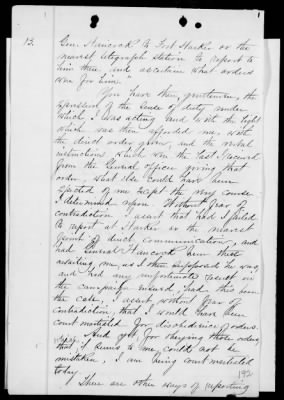 13.
Gen. Hancock to Fort Harker or the
nearest telegraph station to report to
him there and ascertain what orders
were for him."
You have then, gentlemen, the
of the sense of duty under
which I was acting and with the light
which was then afforded me, with
the direct order given, and the verbal
instructions which were the last I received
from the General officer giving that
order, what else could have been
expected of me except the very course
I determined upon. Without fear of
contradiction I assert that had I failed
to report at Harker or the nearest
point of direct communication, and
had General Hancock been there
awaiting me, as I then supposed he was,
and had any unfortunate result in
the campaign ensued, had this been
the case, I assert without fear of
contradiction, that I would have been
court martialed for disobedience of orders.
And yet, for obeying those orders,
that it seems to me could not be
mistaken, I am being court martialed
today.
192
There are other ways of reporting